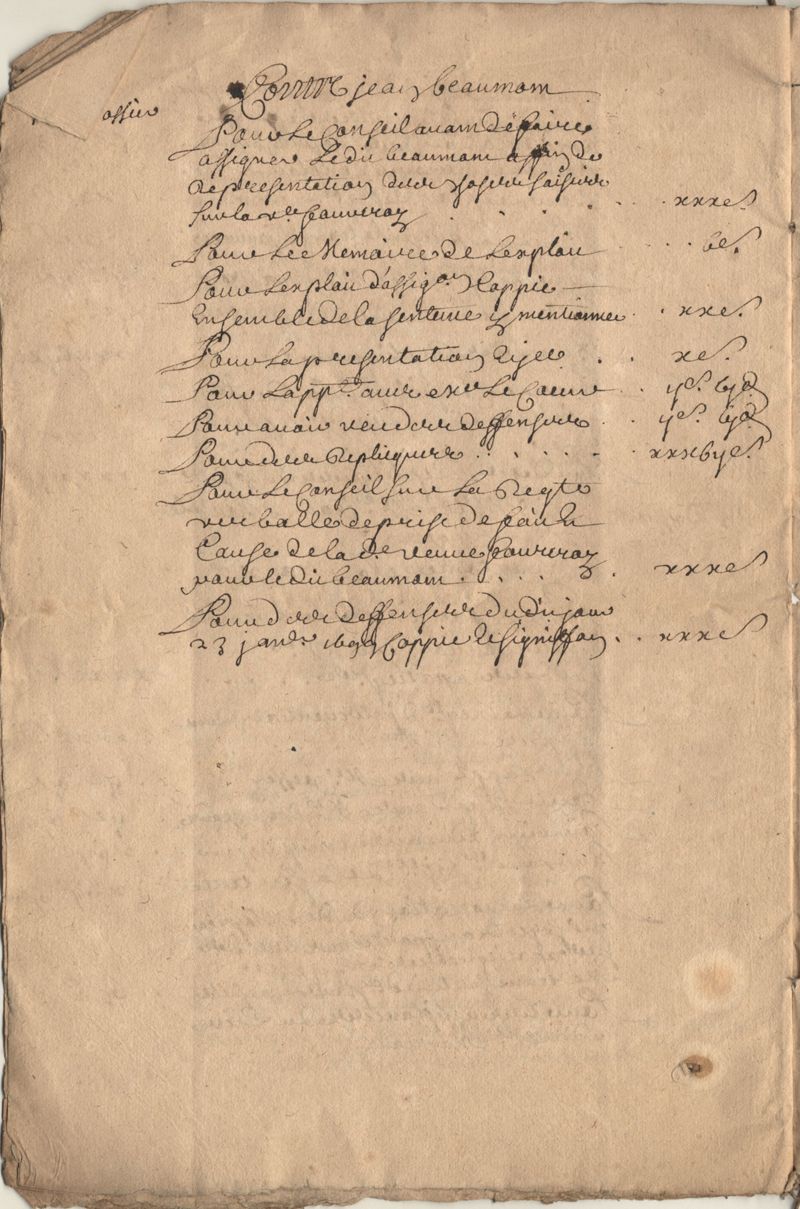 Contre jean beaumont
assier
Pour Le Conseil avant de faire
assigner Ledit beaumont affin de
Representation des choses saisies
sur la ve fauveray . . . . . xxxs.
Pour Le Memoire de Lexploit . . bs.
Pour Lexploit d'assigon Coppie
Ensemble de la sentence y mentionnee . xxs.
Pour La presentation . . xs.
Pour Lappt . ijs. bjd
Pour avoir veu des deffenses . ijs. bjd
Pour des Repliques . . . . . xxxbijs.
Pour Le Conseil sur La Reqte
verballe de prise de fait &
Cause de la de veuve fauveray
pour ledit beaumont . . . . . xxxs
Pour des deffenses dudit jour
23 janer 1699 Coppie & signiffon . . xxxs